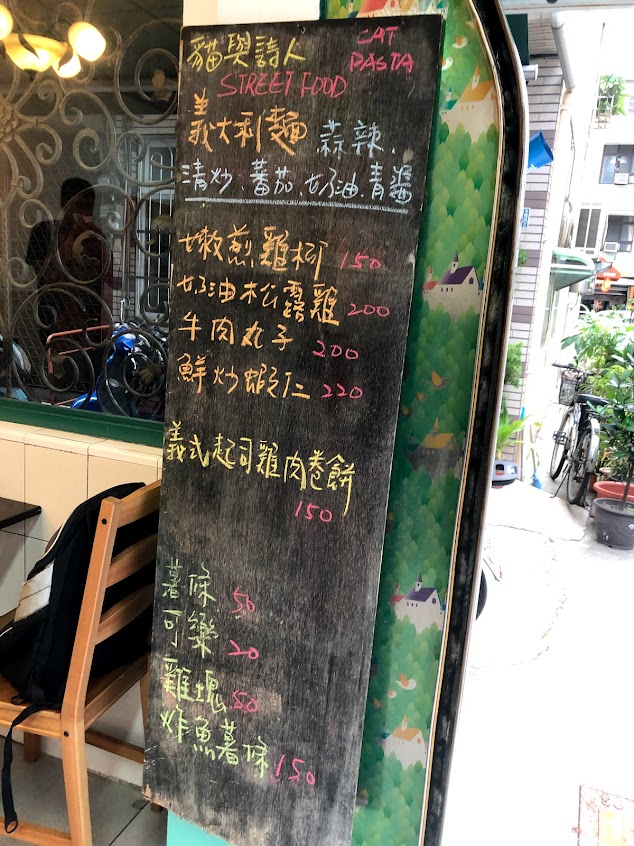 貓與詩人 CAT
STREET FOOD PASTA
義大利麵 蒜辣、
清炒、蕃茄、奶油、青醬
嫩煎雞柳 150
奶油松露雞 200
牛肉丸子 200
鮮炒蝦仁 220
義式起司雞肉卷餅
150
薯條 50
可樂 20
雞塊 50
炸魚薯條 150